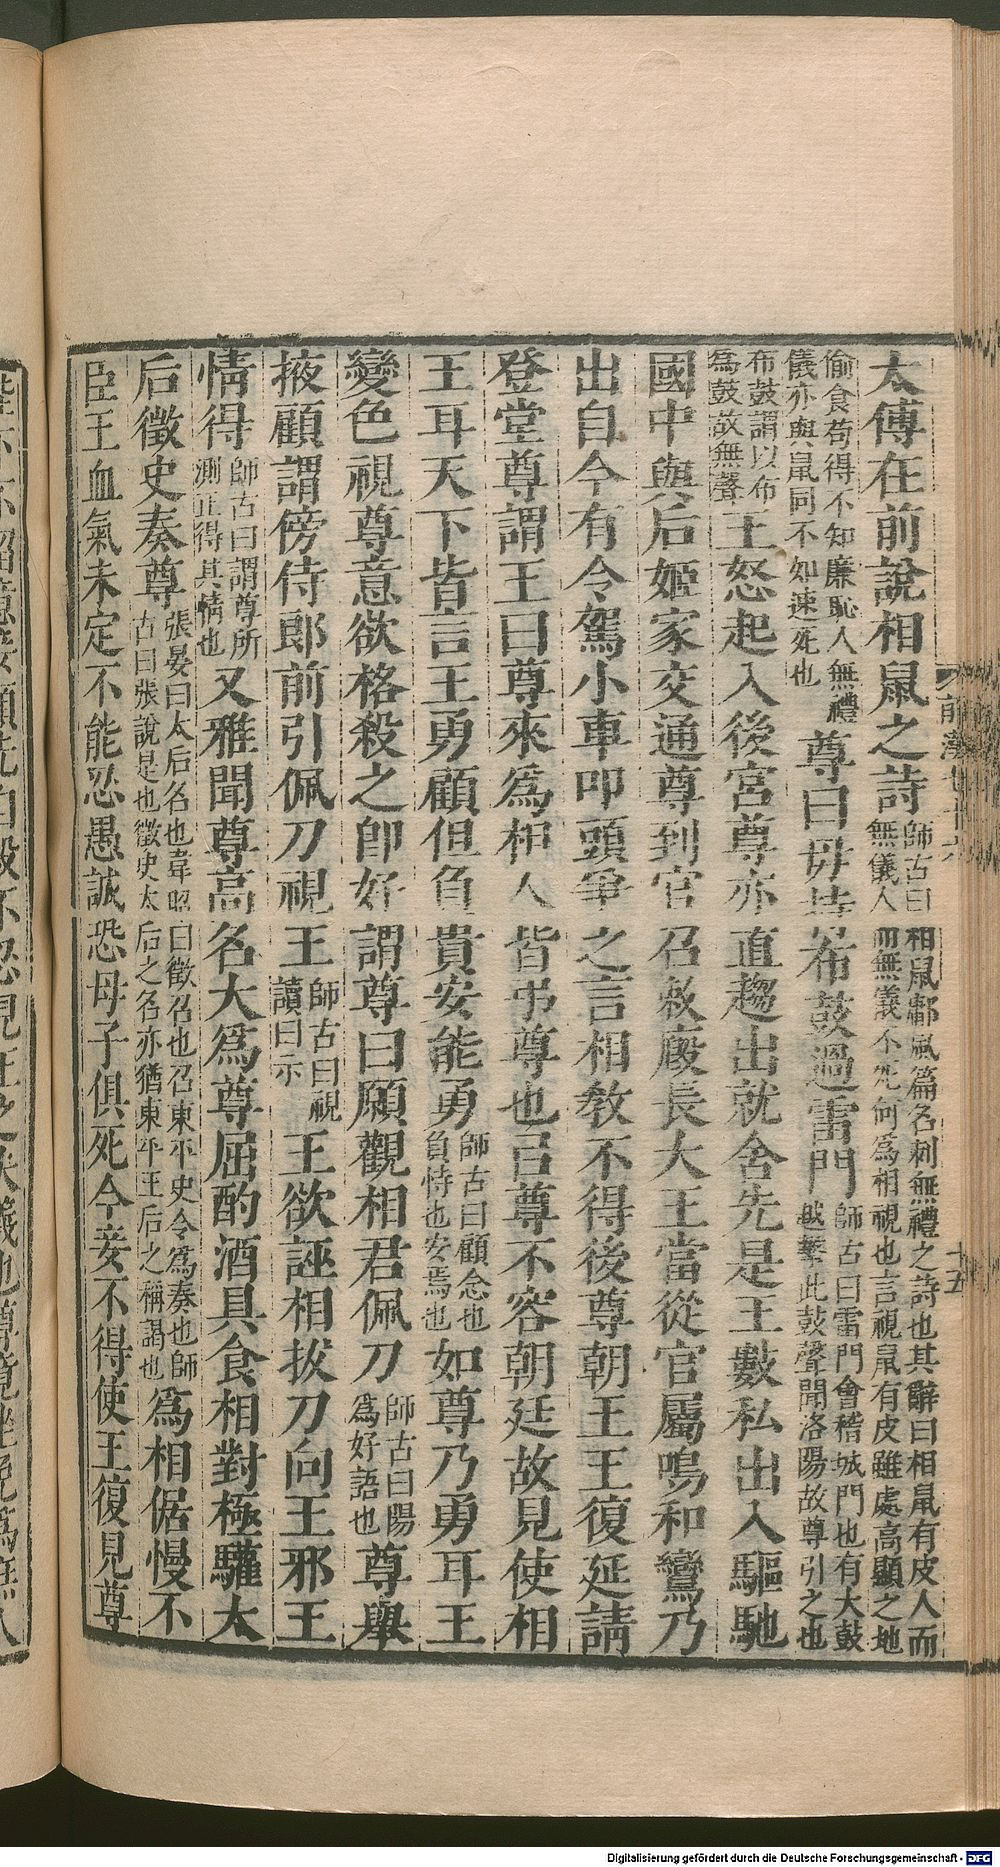 太傅在前說相鼠之詩師古曰相鼠鄘風篇名刺無禮之詩也其辭曰相鼠有皮人而無儀人而無儀不死何爲相視也言視鼠有皮雖處高顯之地
偷食苟得不知廉恥人無禮儀亦與鼠同不如速死也尊曰毋持布鼓過雷門師古曰雷門會稽城門也有大鼓越擊此鼓聲聞洛陽故尊引之也
布鼓謂以布爲鼓故無聲王怒起入後宮尊亦直趨出就舍先是王數私出入驅馳
國中與后姬家交通尊到官召敕廄長大王當從官屬鳴和鸞乃
出自今有令駕小車叩頭爭之言相教不得後尊朝王王復延請
登堂尊謂王曰尊來爲相人皆弔尊也㠯尊不容朝廷故見使相
王耳天下皆言王勇顧但負貴安能勇師古曰顧念也負恃也安焉也如尊乃勇耳王
變色視尊意欲格殺之卽好謂尊曰願觀相君佩刀師古曰陽爲好語也尊舉
掖顧謂傍侍郎前引佩刀視王師古曰視讀曰示王欲誣相拔刀向王邪王
情得師古曰謂尊所測正得其情也又雅聞尊高名大爲尊屈酌酒具食相對極驩太
后徵史奏尊張晏曰太后名也韋昭曰徵召也召東平史令爲奏也師古曰張說是也徵史太后之名亦猶東平王后之稱謁也爲相倨慢不
臣王血氣未定不能忍愚誠恐母子俱死今妾不得使王復見尊
前漢七十六
十五
Digitalisierung gefördert durch die Deutsche Forschungsgemeinschaft - DFG